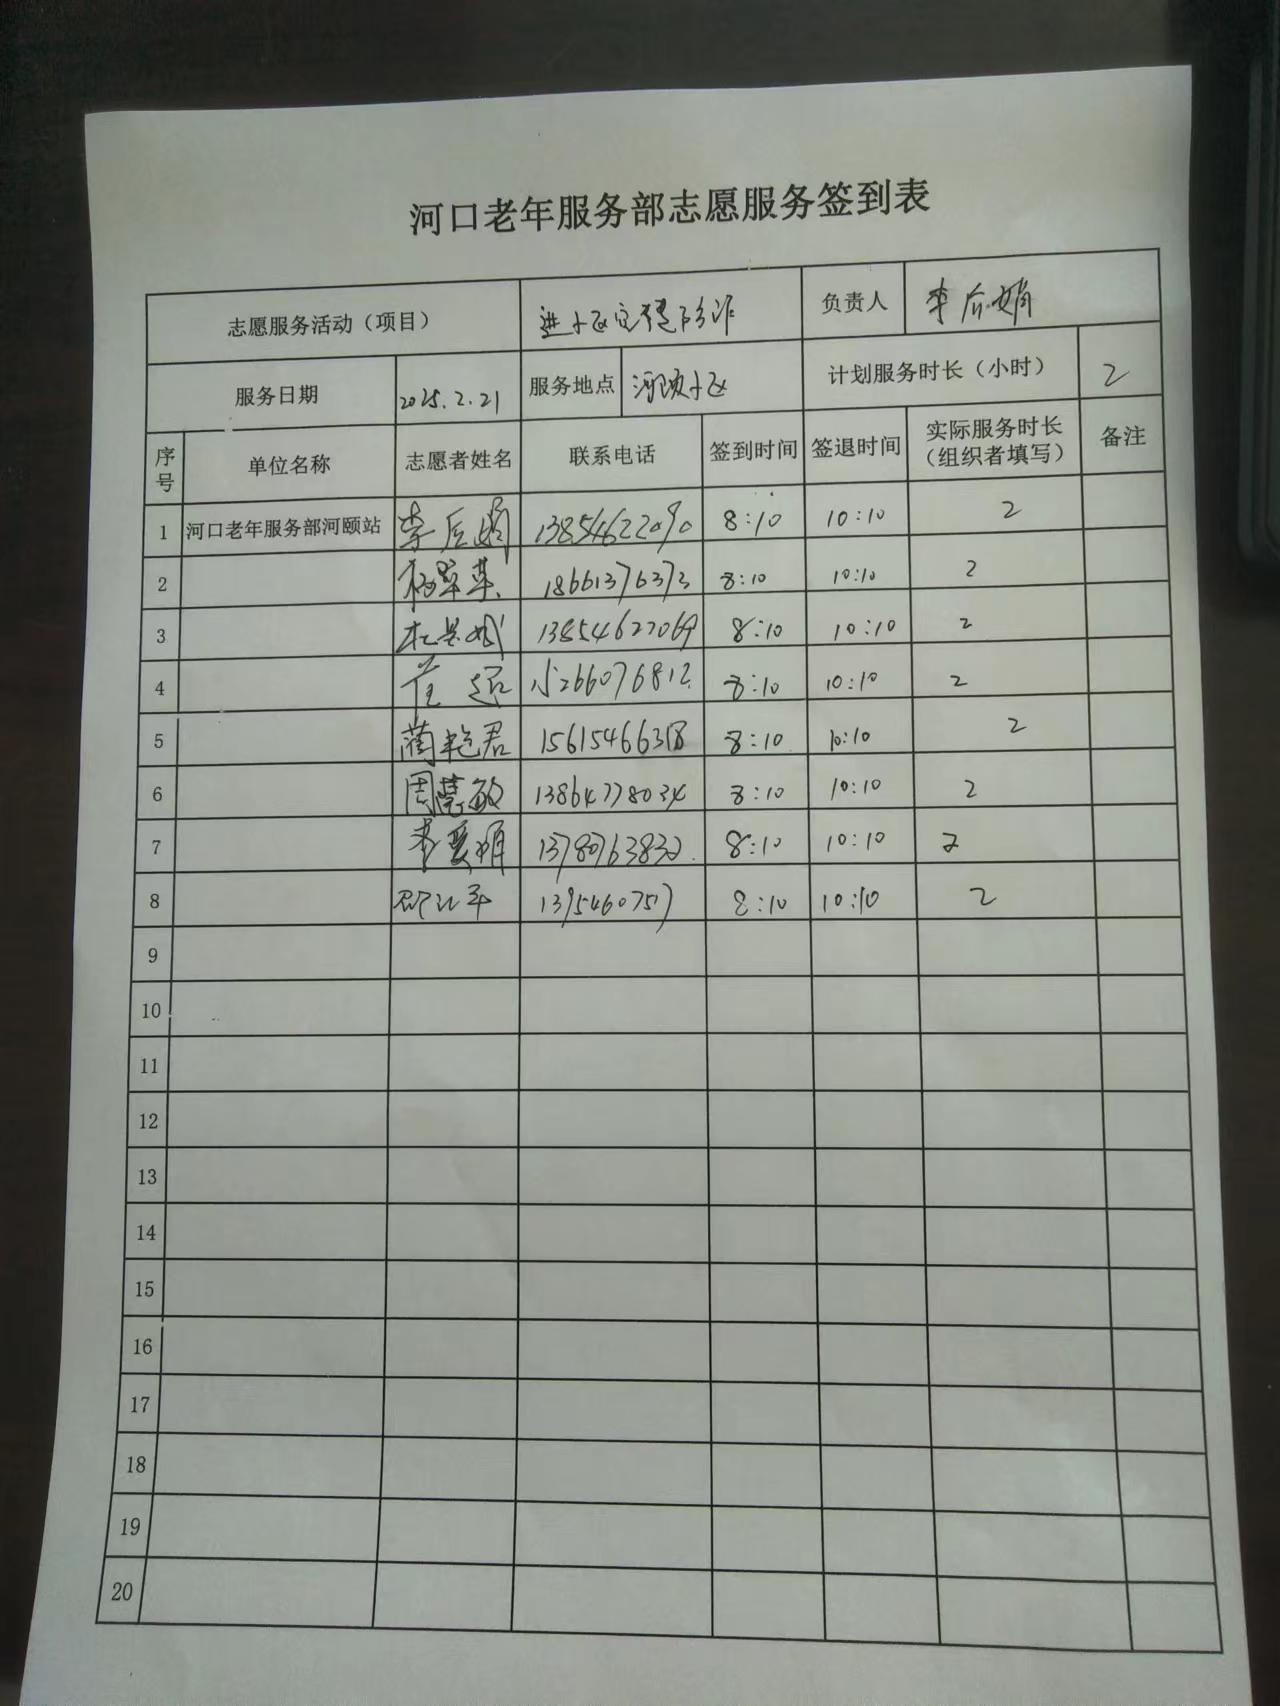 河口老年服务部志愿服务签到表
志愿服务活动（项目） 进小区宣传防诈 负责人 李后娟
服务日期 2025.2.21 服务地点 河颐小区 计划服务时长（小时） 2
序号 单位名称 志愿者姓名 联系电话 签到时间 签退时间 实际服务时长（组织者填写） 备注
1 河口老年服务部河颐站 李后娟 13854622090 8:10 10:10 2
2 18661376373 8:10 10:10 2
3 13854622069 8:10 10:10 2
4 崔超 15266076812 8:10 10:10 2
5 蔺艳君 15615466318 8:10 10:10 2
6 周慧敏 13864778034 8:10 10:10 2
7 李爱娟 13780763832 8:10 10:10 2
8 1395460757 8:10 10:10 2
9
10
11
12
13
14
15
16
17
18
19
20